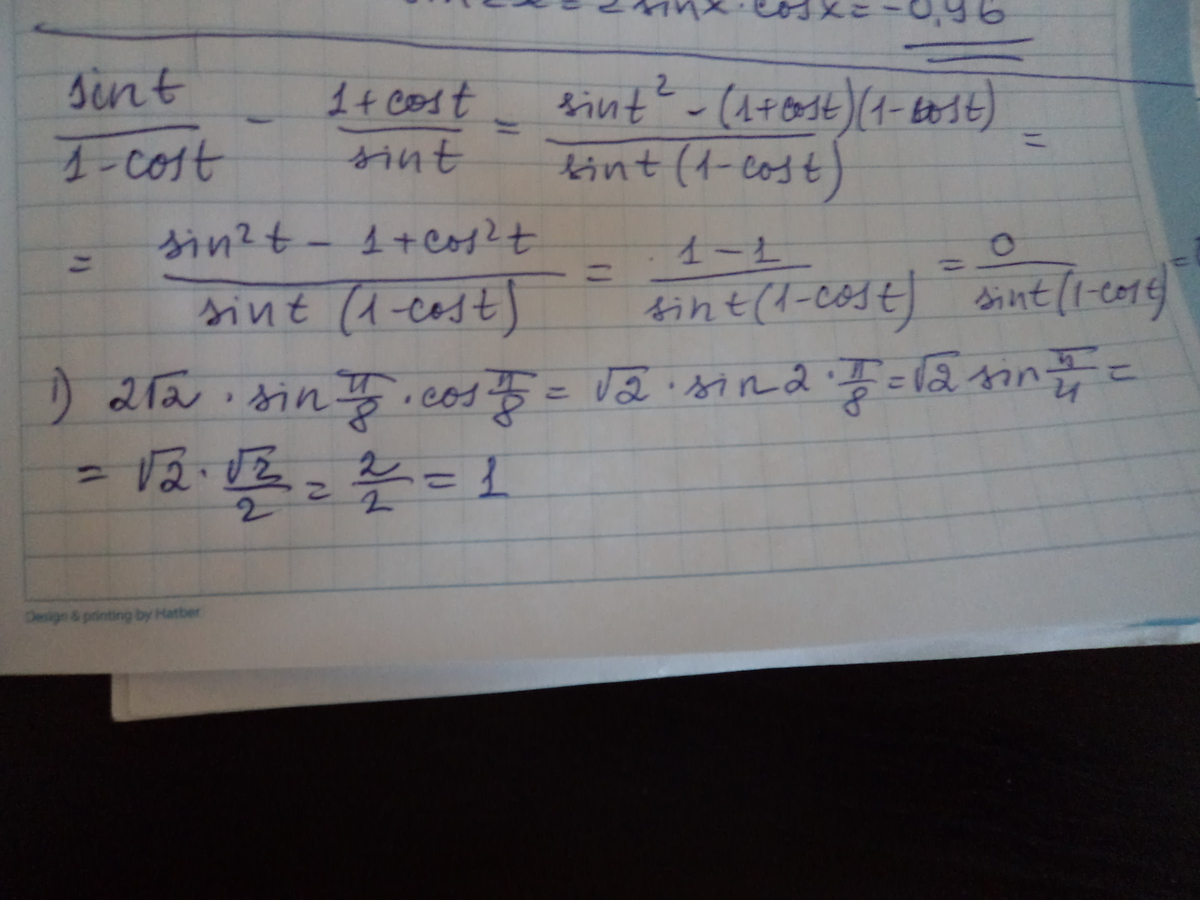 sin2x = 2sinx·cosx = -0,96
sint/(1-cost) - (1+cost)/sint = (sint² - (1+cost)(1-cost))/(sint(1-cost)) =
= (sin²t - 1+cos²t)/(sint (1-cost)) = (1-1)/(sint(1-cost)) = 0/(sint(1-cost)) =
1) 2√2 · sin π/8 · cos π/8 = √2 · sin 2 · π/8 = √2 sin π/4 =
= √2 · √2/2 = 2/2 = 1
Design & printing by Hatber